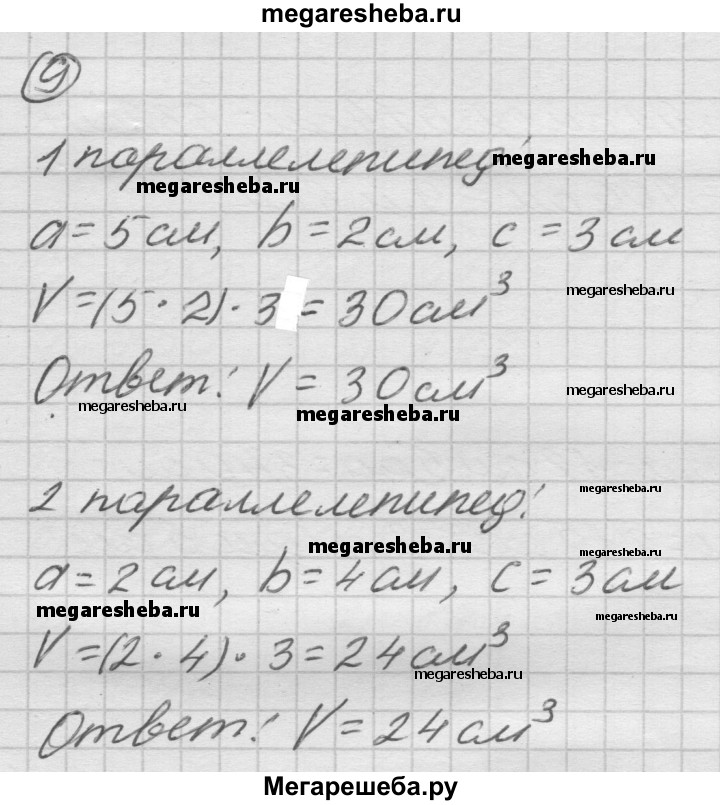 megaresheba.ru
9
1 параллелепипед:
megaresheba.ru
megaresheba.ru
a = 5 см, b = 2 см, c = 3 см
V = (5 · 2) · 3 = 30 см³
megaresheba.ru
Ответ: V = 30 см³
megaresheba.ru
megaresheba.ru
megaresheba.ru
2 параллелепипед:
megaresheba.ru
megaresheba.ru
megaresheba.ru
a = 2 см, b = 4 см, c = 3 см
megaresheba.ru
megaresheba.ru
V = (2 · 4) · 3 = 24 см³
megaresheba.ru
Ответ: V = 24 см³
Мегарешеба.ру